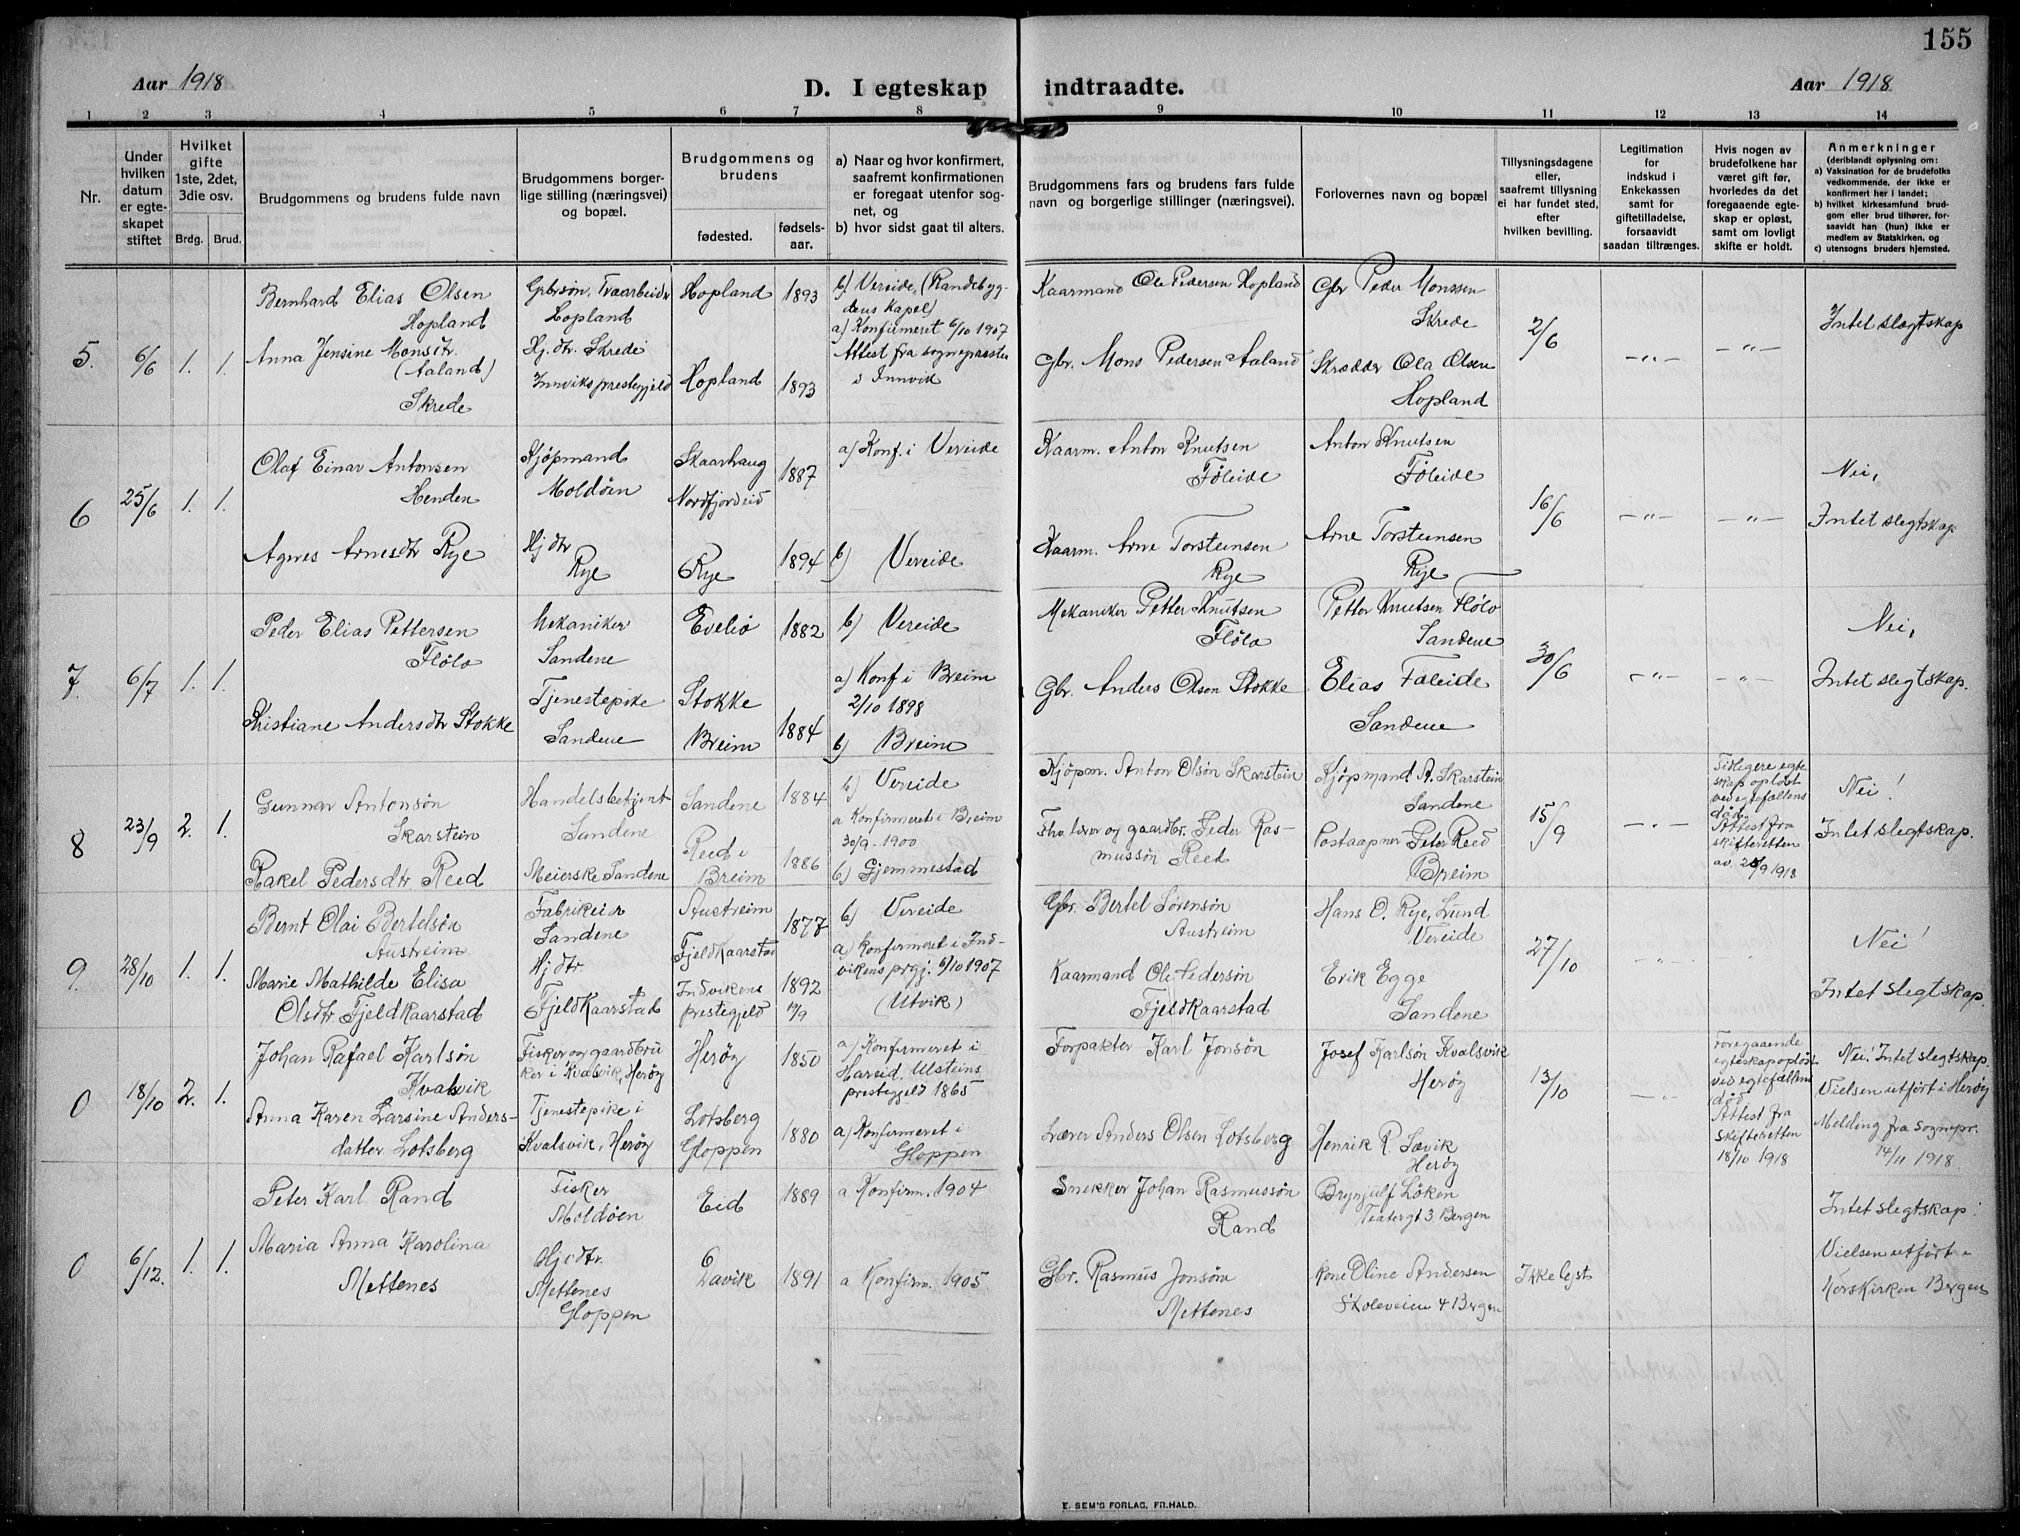 155
Aar 1918
D. I egteskap indtraadte.
Aar 1918
1 2 3 4 5 6 7 8 9 10 11 12 13 14
Nr.
Under hvilken datum er egteskapet stiftet
Hvilket gifte 1ste, 2det, 3die osv.
Brdg. Brud.
Brudgommens og brudens fulde navn
Brudgommens borgerlige stilling (næringsvei) og bopæl.
Brudgommens og brudens
fødested.
fødselsaar.
a) Naar og hvor konfirmert, saafremt konfirmationen er foregaat utenfor sognet, og
b) hvor sidst gaat til alters.
Brudgommens fars og brudens fars fulde navn og borgerlige stillinger (næringsvei).
Forlovernes navn og bopæl
Tillysningsdagene eller, saafremt tillysning ei har fundet sted, efter hvilken bevilling.
Legitimation for indskud i Enkekassen samt for giftetilladelse, forsaavidt saadan tiltrænges.
Hvis nogen av brudefolkene har været gift før, hvorledes da det foregaaende egteskap er opløst, samt om lovligt skifte er holdt.
Anmerkninger
(deriblandt oplysning om:
a) Vaksination for de brudefolks vedkommende, der ikke er konfirmert her i landet;
b) hvilket kirkesamfund brudgom eller brud tilhører, forsaavidt han (hun) ikke er medlem av Statskirken, og
c) utensogns bruders hjemsted.
5. 6/6 1. 1.
Bernhard Elias Olsen
Hopland
Anna Jensine Monsdtr.
(Aaland)
Skrede
Gbrsøn. Traarbeider
Hopland
Hj. dtr. Skrede
Innviks prestegjeld
Hopland 1893
Hopland 1893
b) Vereide, (Randebygdens kapel)
a) Konfirmeret 6/10 1907
Attest fra sognepresten
i Innvik
Kaarmand Ole Pedersen Hopland
Gbr. Mons Pedersen Aaland
Gbr Peder Monssen
Skrede
Skrædder Ola Olsen
Hopland
2/6
Intet slegtskap
6 25/6 1. 1.
Olaf Einar Antonsen
Henden
Agnes Arnesdtr Rye
Kjøpmand
Moldøen
Hj dtr
Rye
Skaarhaug
Nordfjordeid
1887
Rye 1894
a) Konf. i Vereide
b) Vereide
Kaarm. Anton Knutsen
Føleide
Kaarm. Arne Torsteinsen
Rye
Anton Knutsen
Føleide
Arne Torsteinsen
Rye
16/6
Nei,
Intet slegtskap
7. 6/7 1. 1.
Peder Elias Pettersen
Flølo
Kristiane Andersdtr Stokke
Mekaniker
Sandene
Tjenestepike
Sandene
1882
Stokke
Breim
1884
b) Vereide
a) Konf i Breim
2/10 1898
b) Breim
Mekaniker Petter Knutsen
Flølo
Gbr. Anders Olsen Stokke
Petter Knutsen Flølo
Sandene
Elias Føleide
Sandene
30/6
Nei,
Intet slegtskap.
8 23/9 2. 1.
Gunnar Antonsøn
Skarstein
Rakel Pedersdtr Reed
Handelsbetjent
Sandene
Meierske Sandene
Sandene 1884
Reed i
Breim
1886
b) Vereide
a Konfirmeret i Breim
30/9 - 1900
b) Gjemmestad
Kjøpm. Anton Olsøn Skarstein
Fhv. lærer og gaardbr. Peder Rasmussøn Reed
Kjøpmand A. Skarstein
Sandene
Postaapner Peter Reed
Breim
15/9
Tidligere egteskap opløst
ved egtefællens
død.
Attest fra
skifteretten
av. 20/9 1918
Nei!
Intet slegtskap.
9. 28/10 1. 1.
Bernt Olai Bertelsøn
Austreim
Marie Mathilde Elisa
Olsdtr Fjeldkaarstad
Fabrikeier
Sandene
Hj dtr.
Fjeldkaarstad
Austreim 1877
Fjeldkaarstad
Indvikens
prestegjeld
1892
b) Vereide
a) Konfirmeret i Indvikens prgj. 6/10 1907
(Utvik)
Gbr. Bertel Sørensøn
Austreim
Kaarmand Ole Pedersøn
Fjeldkaarstad
Hans O. Rye, Lund
Vereide
Erik Egge
Sandene
27/10
Nei!
Intet slegtskap.
0 18/10 2. 1.
Johan Rafael Karlsøn
Kvalsvik
Anna Karen Larsine Andersdatter Lotsberg
Fisker og gaardbruker i Kvalsvik, Herøy
Tjenestepike i
Kvalsvik, Herøy
Herøy 1850
Lotsberg
Gloppen
1880
a) Konfirmeret i
Hareid. Ulsteins
prestegjeld 1865
a) Konfirmeret i
Gloppen
Forpakter Karl Jonsøn
Lærer Anders Olsen Lotsberg
Josef Karlsøn Kvalsvik
Herøy
Henrik R. Sævik
Herøy
13/10
Foregaaende
egteskap opløst
ved egtefællens
død
Attest fra
Skifteretten
18/10 1918
Nei! Intet slegtskap.
Vielsen utført i Herøy
Melding fra sognepr.
14/11 1918.
0 6/12. 1. 1.
Peter Karl Rand
Maria Anna Karolina
Mettenes
Fisker
Moldøen
Hj dtr.
Mettenes
Gloppen
Eid 1889
Lavik 1891
a Konfirm. 1904
a Konfirm. 1905.
Snekker Johan Rasmussøn
Rand
Gbr. Rasmus Jonsøn
Mettenes
Brynjulf Løken
Teatergt 3 Bergen
Kone Oline Andersen
Skoleveien 4 Bergen
Ikke lyst
Intet slegtskap!
Vielsen utført i
Korskirken Bergen
E. SEM'S FORLAG, FR.HALD.